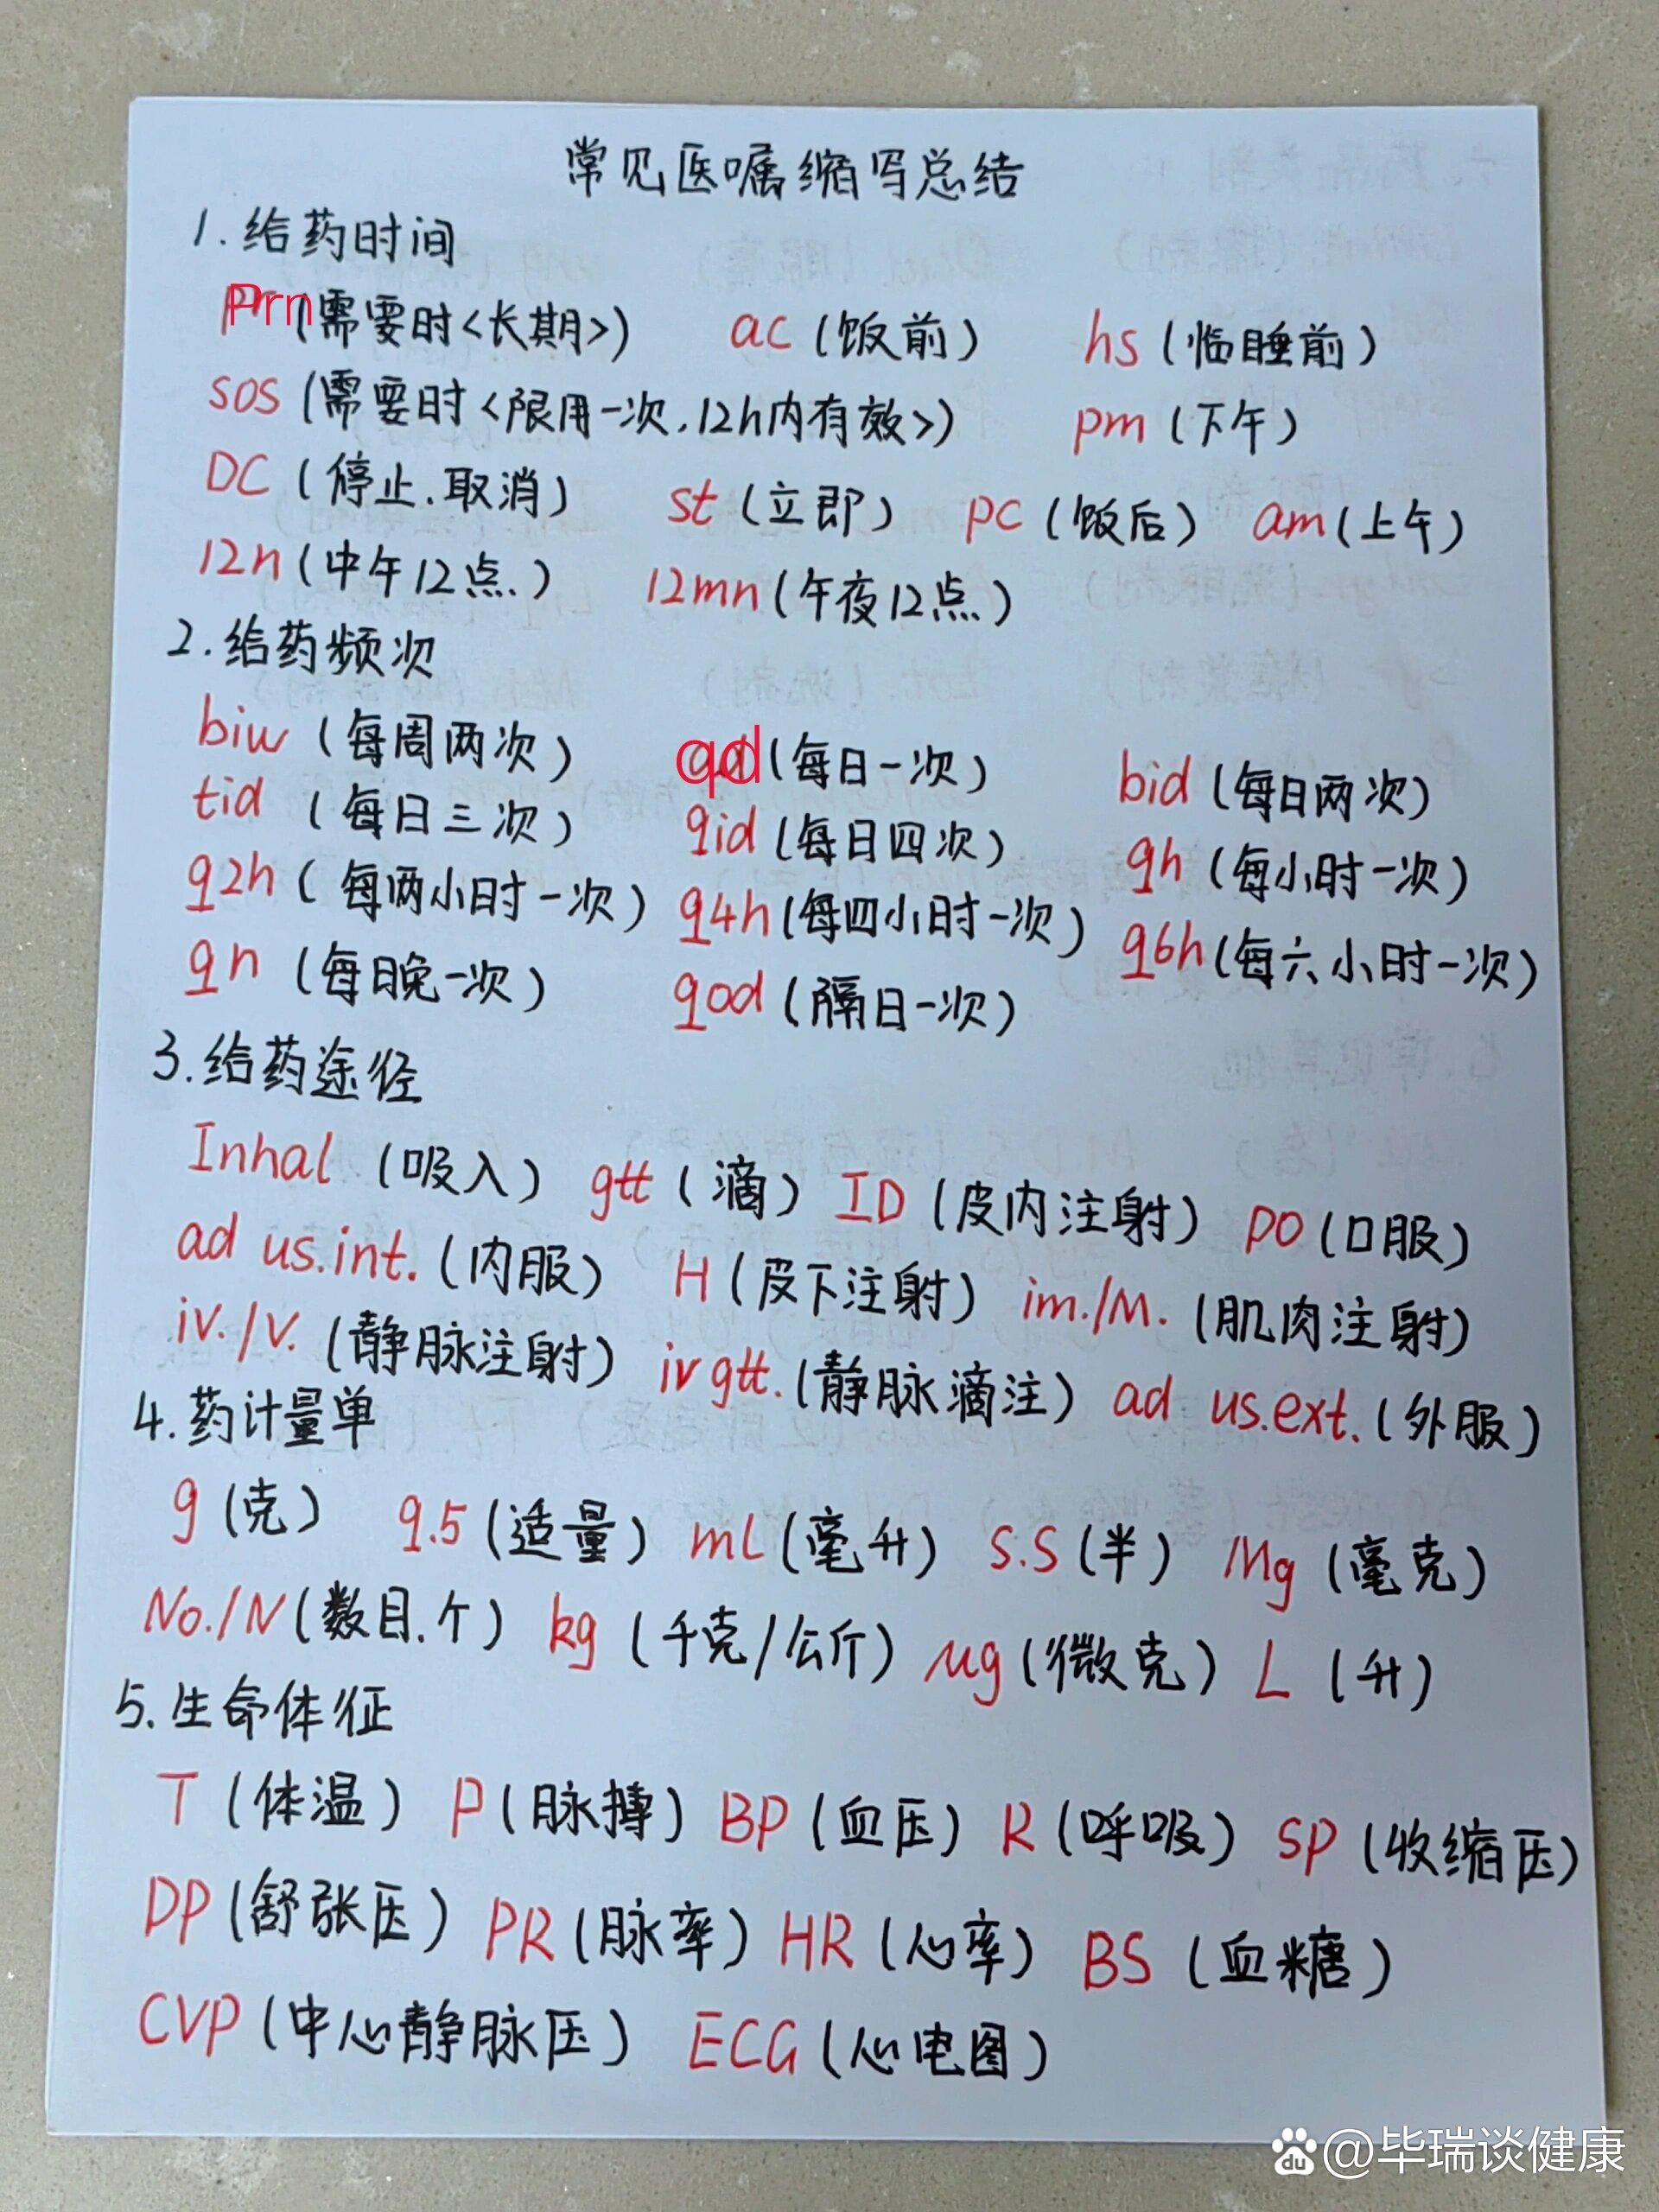 常见医嘱缩写总结
1.给药时间
Prn(需要时<长期>) ac(饭前) hs(临睡前)
sos(需要时<限用一次.12h内有效>) pm(下午)
DC(停止.取消) st(立即) pc(饭后) am(上午)
12n(中午12点.) 12mn(午夜12点)
2.给药频次
biw(每周两次) qd(每日一次) bid(每日两次)
tid(每日三次) qid(每日四次) qh(每小时一次)
q2h(每两小时一次) q4h(每四小时一次) q6h(每六小时一次)
qn(每日晚一次) qod(隔日一次)
3.给药途径
Inhal(吸入) gtt(滴) ID(皮内注射) PO(口服)
ad us.int.(内服) H(皮下注射) im./M.(肌肉注射)
iv./V.(静脉注射) iv gtt.(静脉滴注) ad us.ext.(外服)
4.药计量单
g(克) q.5(适量) mL(毫升) S.S(半) Mg(毫克)
No./N(数目.个) kg(千克/公斤) ug(微克) L(升)
5.生命体征
T(体温) P(脉搏) BP(血压) R(呼吸) SP(收缩压)
DP(舒张压) PR(脉率) HR(心率) BS(血糖)
CVP(中心静脉压) ECG(心电图)
du @毕瑞谈健康